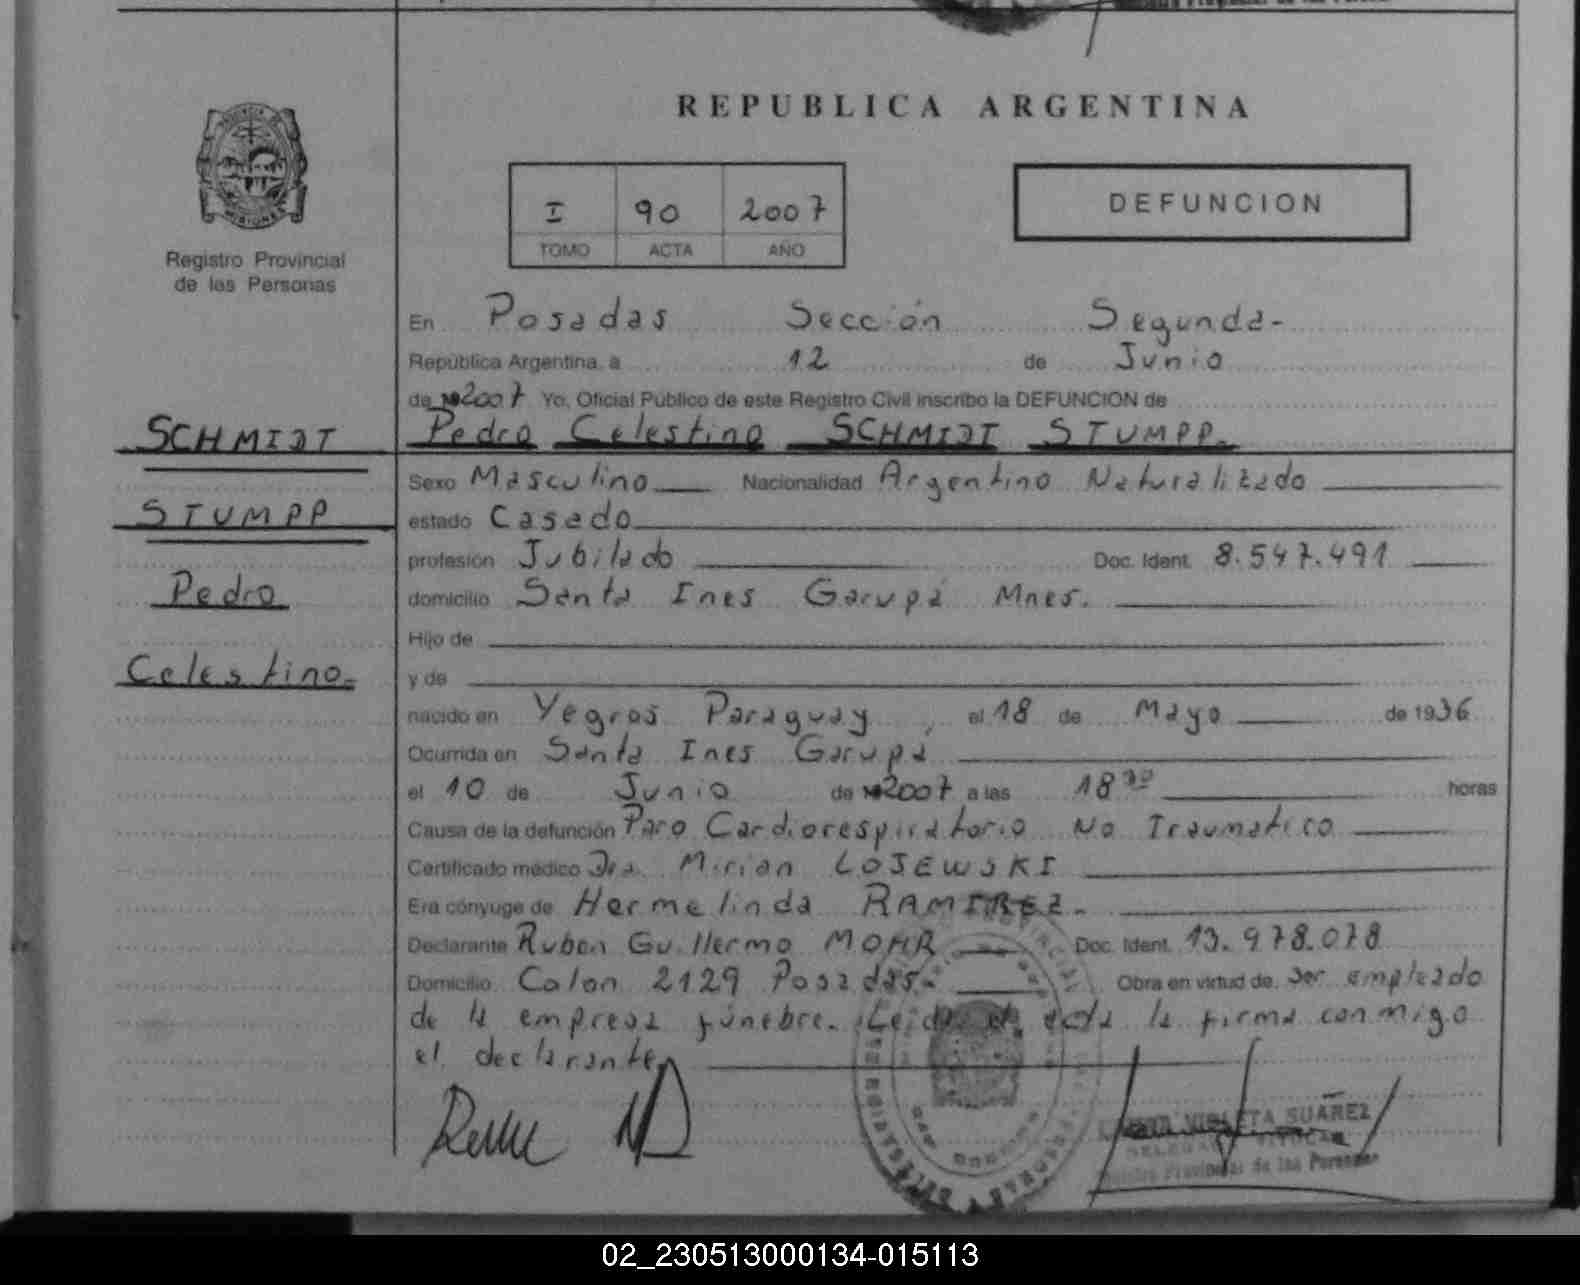 REPUBLICA ARGENTINA
I 90 2007
TOMO ACTA AÑO
DEFUNCION
MISIONES
Registro Provincial
de las Personas
En Posadas Sección Segunda-
República Argentina, a 12 de Junio
de 2007 Yo, Oficial Público de este Registro Civil inscribo la DEFUNCION de
SCHMIDT
Pedro Celestino SCHMIDT STUMPP.
STUMPP
Pedro
Celestino-
Sexo Masculino Nacionalidad Argentino Naturalizado
estado Casado
profesión Jubilado Doc. Ident. 8.547.491
domicilio Santa Ines Garupá Mnes.
Hijo de
y de
nacido en Yegros Paraguay, el 18 de Mayo de 1936
Ocurrida en Santa Ines Garupá
el 10 de Junio de 2007 a las 18 30 horas
Causa de la defunción Paro Cardiorespiratorio No Traumatico
Certificado médico Dra. Mirian LOJEWSKI
Era cónyuge de Hermelinda RAMIREZ-
Declarante Ruben Guillermo MOHR Doc. Ident. 13.978.078
Domicilio Colon 2129 Posadas- Obra en virtud de ser empleado
de la empresa fúnebre. Leída el acta la firma conmigo
el declarante
VIOLETA SUAREZ
Provincial de las Personas
02_230513000134-015113